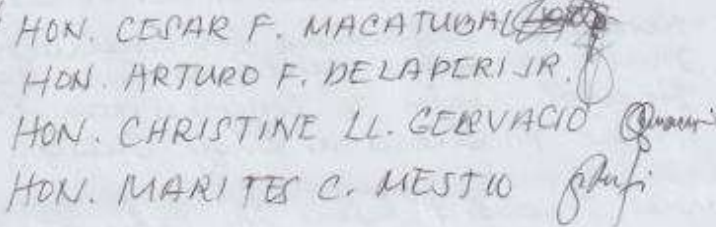 HON. CESAR F. MACATUGAL
HON. ARTURO F. DELA PERI JR.
HON. CHRISTINE LL. GERVACIO
HON. MARITES C. MESTIO